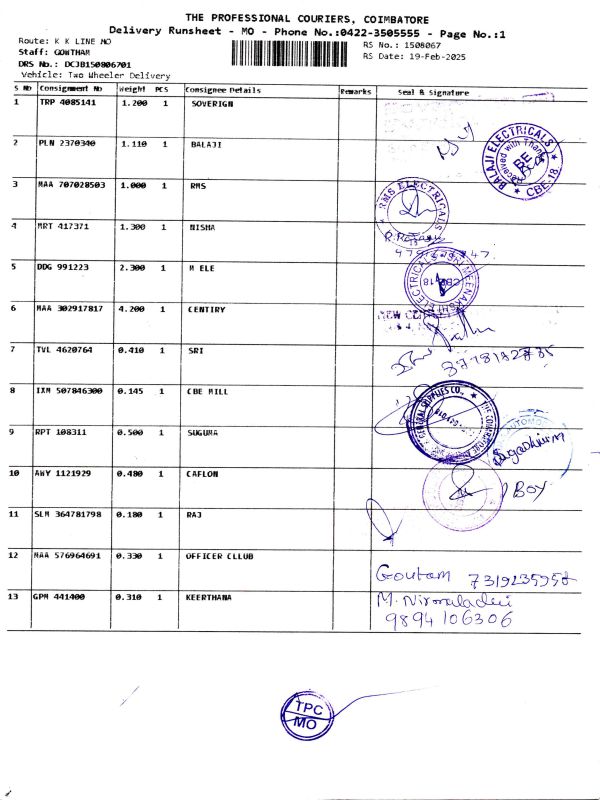 THE PROFESSIONAL COURIERS, COIMBATORE
Delivery Runsheet - MO - Phone No.:0422-3505555 - Page No.:1
Route: K K LINE MO
RS No.: 1508067
Staff: GOWTHAM
RS Date: 19-Feb-2025
DRS No.: DCJB150806701
Vehicle: Two Wheeler Delivery
S No Consignment No Weight PCS Consignee Details Remarks Seal & Signature
1 TRP 4085141 1.200 1 SOVERIGN
2 PLN 2370340 1.110 1 BALAJI
BALAJI ELECTRICALS
Received with Thanks
CBE-18
3 MAA 707028503 1.000 1 RMS
RMS ELECTRICALS
4 MRT 417371 1.300 1 NISHA
5 DDG 991223 2.300 1 M ELE
SRI MEENAKSHI ELECTRICALS
CBE 18
6 MAA 302917817 4.200 1 CENTIRY
7 TVL 4620764 0.410 1 SRI
8 IXM 507846300 0.145 1 CBE MILL
9 RPT 108311 0.500 1 SUGUNA
10 AWY 1121929 0.480 1 CAFLON
BOY
11 SLM 364781798 0.180 1 RAJ
12 MAA 576964691 0.330 1 OFFICER CLLUB
Goutam
13 GPM 441400 0.310 1 KEERTHANA
M. Nirmaladevi
9894106306
TPC
MO